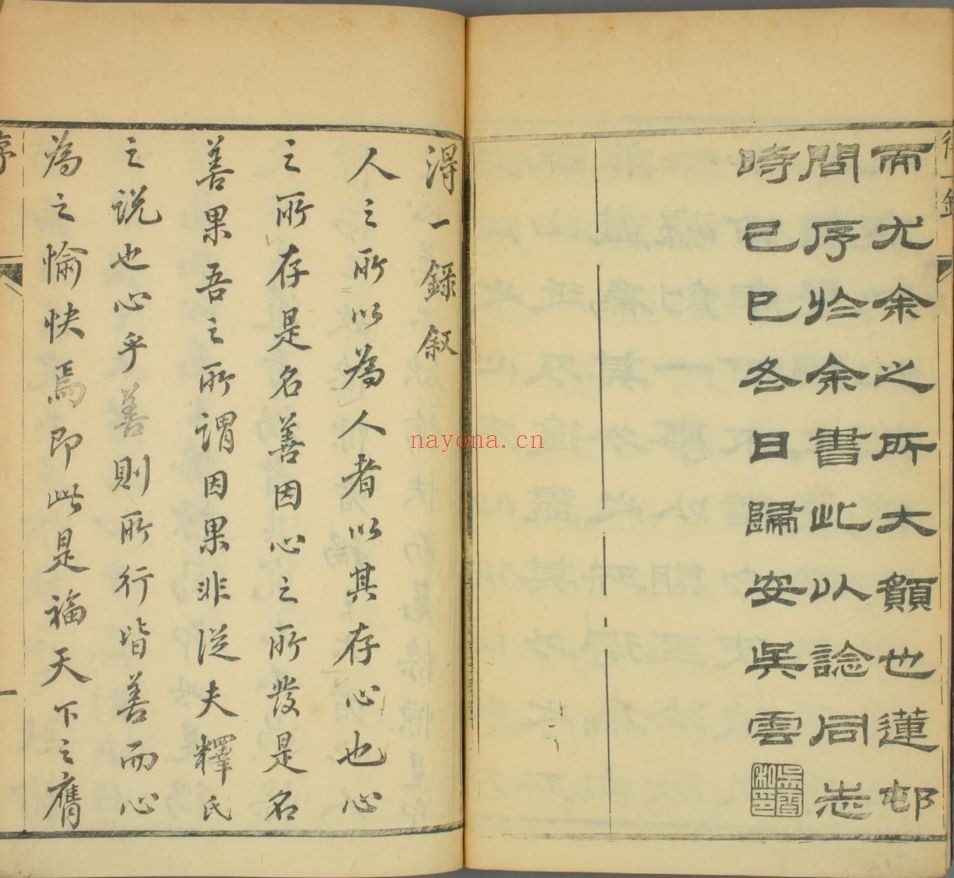 而尤余之所大願也蓮邨
問序於余書此以諗同志
時己巳冬日歸安吳雲
得一錄敘
人之所以為人者以其存心也心
之所存是名善因心之所發是名
善果吾之所謂因果非從夫釋氏
之說也心乎善則所行皆善而心
為之愉快焉即此是福天下之膺
序
一
nayona.cn